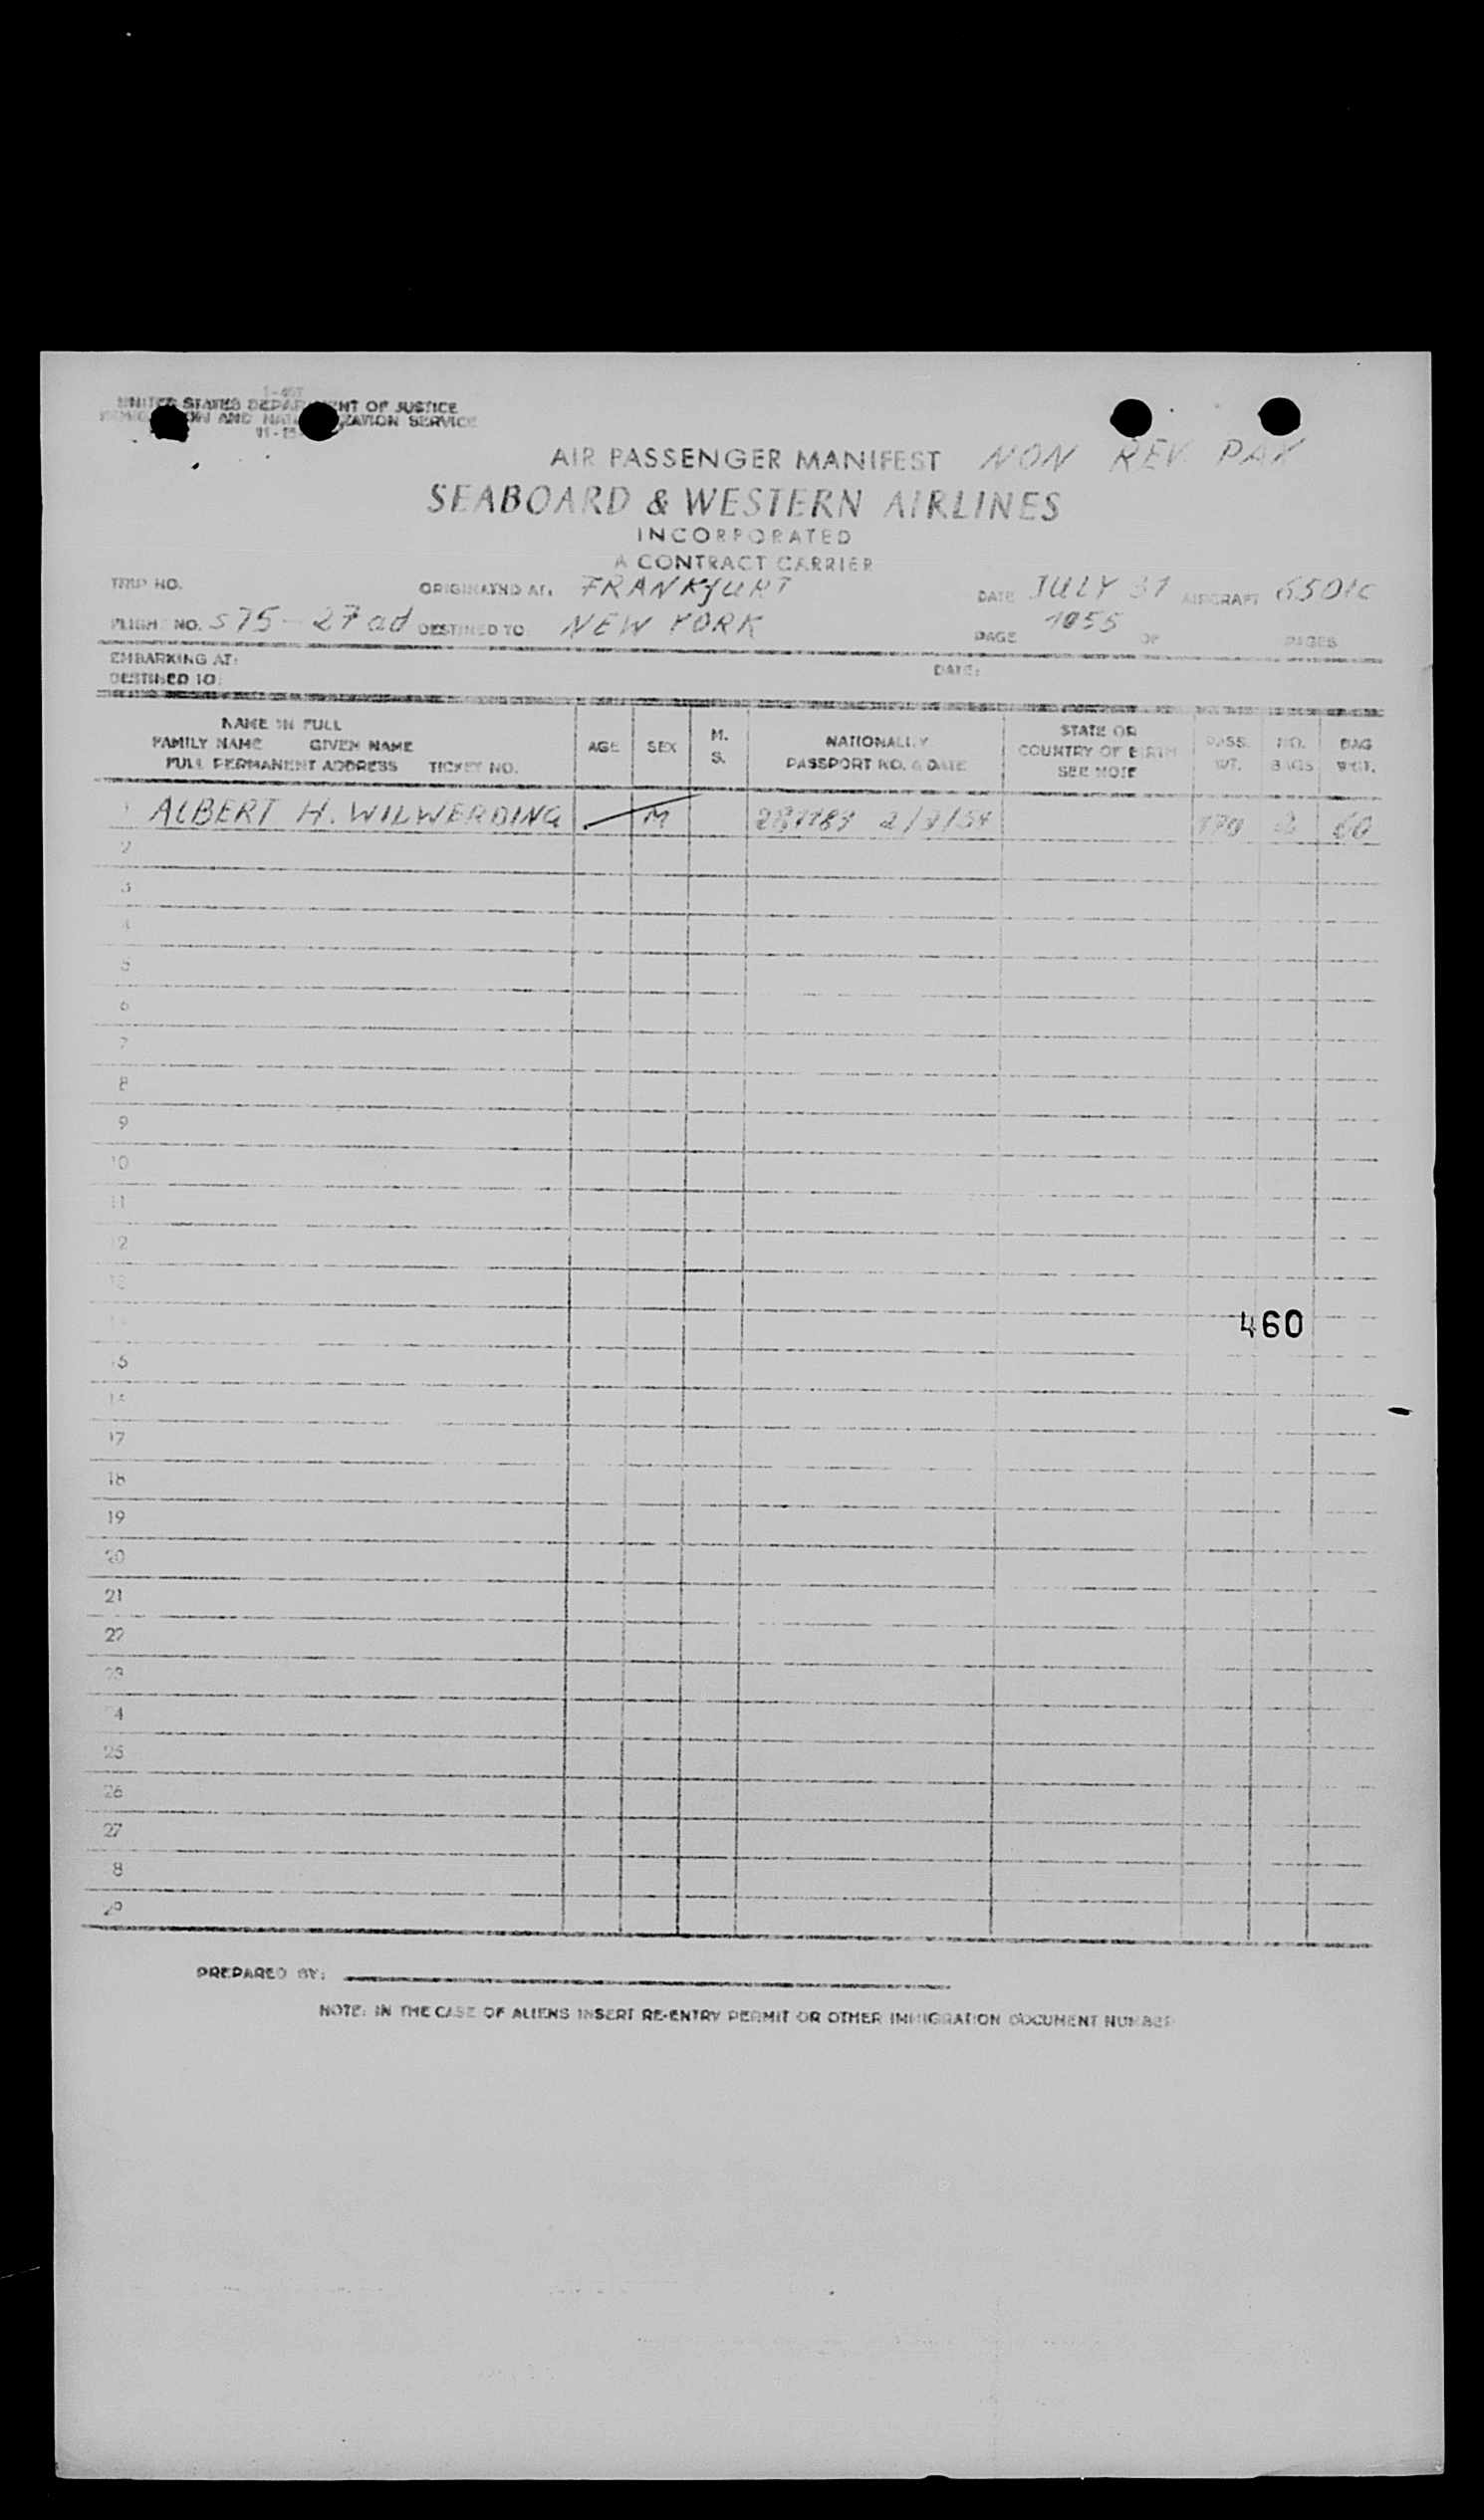 I-457
UNITED STATES DEPAR   ENT OF JUSTICE
ON AND NAT   IZATION SERVICE
AIR PASSENGER MANIFEST NON REV. PAX
SEABOARD & WESTERN AIRLINES
INCORPORATED
A CONTRACT CARRIER
TRIP NO. ORIGINATND AT: FRANKFURT DATE JULY 31 AIRCRAFT 6501C
FLIGHT NO. S75-27ad DESTINED TO NEW YORK PAGE 1955 OF PAGES
EMBARKING AT: DATE:
DESTINED TO:
NAME IN FULL
FAMILY NAME GIVEN NAME
FULL PERMANENT ADDRESS TICKET NO.
AGE SEX M. S.
NATIONALITY
PASSPORT NO. & DATE
STATE OR
COUNTRY OF BIRTH
SEE NOTE
PASS. WT.
NO. BAGS
BAG WGT.
1 ALBERT H. WILWERDING M 2/9/54 170 60
2
3
4
5
6
7
8
9
10
11
12
13
460
15
17
18
19
20
21
22
23
24
25
26
27
8
29
PREPARED BY:
NOTE: IN THE CASE OF ALIENS INSERT RE-ENTRY PERMIT OR OTHER IMMIGRATION DOCUMENT NUMBER